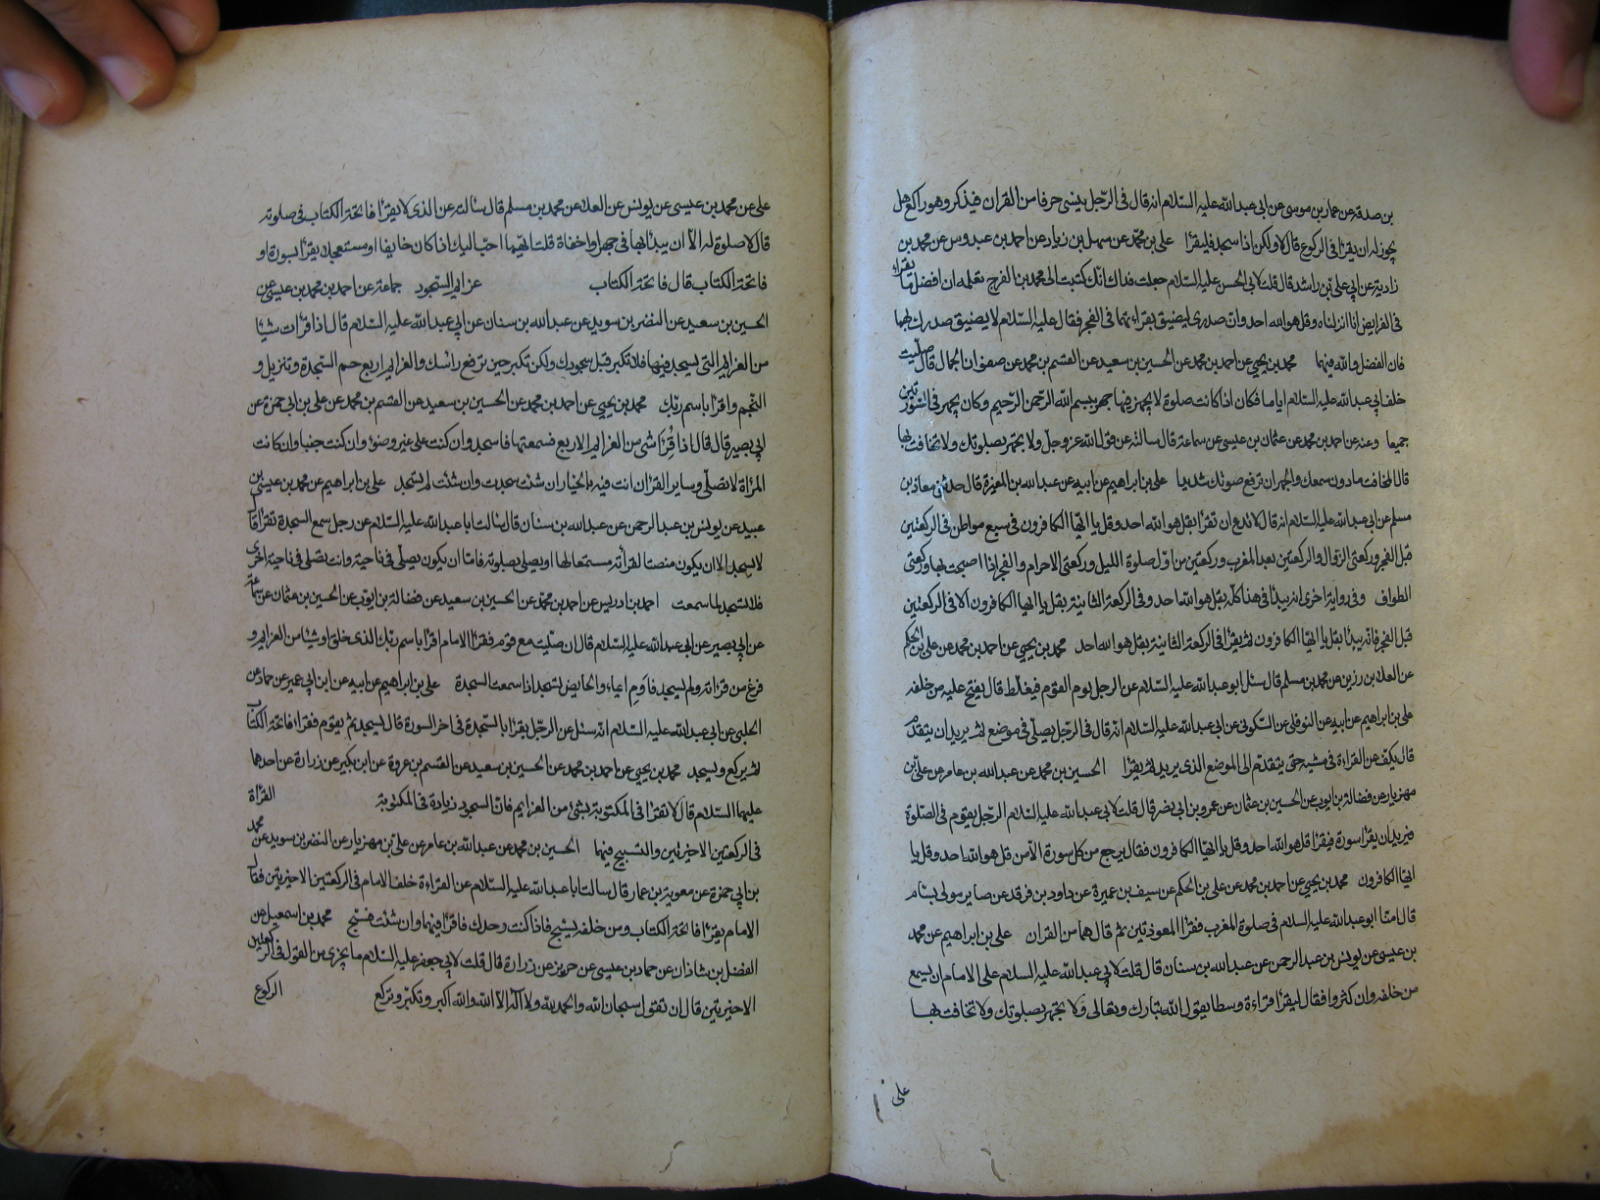 بن صدقة عن عمار بن موسى عن ابى عبدالله عليه السلام انه قال فى الرجل ينسى حرفا من القران فيذكر وهو راكع هل
يجوز له ان يقرا فى الركوع قال لا ولكن اذا سجد فليقرا على بن محمد عن سهل بن زياد عن احمد بن عبدوس عن محمد بن
زادية عن ابى على بن راشد قال قلت لابى الحسن عليه السلام جعلت فداك انك كتبت الى محمد بن الفرج تعلمه ان افضل ما يقراء
فى الفرايض انا انزلناه وقل هو الله احد وان صدرى ليضيق بقراءتهما فى الفجر فقال عليه السلام لا يضيق صدرك بهما
فان الفضل والله فيهما محمد بن يحيى عن احمد بن محمد عن الحسين بن سعيد عن القسم بن محمد عن صفوان الجمال قال صليت
خلف ابى عبدالله عليه السلام اياما فكان اذا كانت صلوة لا يجهر فيها جهر ببسم الله الرحمن الرحيم وكان يجهر فى السورتين
جميعا وعنه عن احمد بن محمد عن عثمان بن عيسى عن سماعة قال سالته عن قول الله عز وجل ولا تجهر بصلوتك ولا تخافت بها
قال المخافت ما دون سمعك والجهر ان ترفع صوتك شديدا على بن ابراهيم عن ابيه عن عبدالله بن المغيرة قال حدثنى معاذ بن
مسلم عن ابى عبدالله عليه السلام انه قال لا تدع ان تقرا بقل هو الله احد وقل يا ايها الكافرون فى سبع مواطن فى الركعتين
قبل الفجر وركعتى الزوال والركعتين بعد المغرب وركعتين من اول صلوة الليل وركعتى الاحرام والفجر اذا اصبحت بها وركعتى
الطواف وفى رواية اخرى انه يبدا فى هذا كله بقل هو الله احد وفى الركعة الثانية بقل يا ايها الكافرون الا فى الركعتين
قبل الفجر فانه يبدا بقل يا ايها الكافرون ثم يقرا فى الركعة الثانية بقل هو الله احد محمد بن يحيى عن احمد بن محمد عن على بن الحكم
عن العلا بن رزين عن محمد بن مسلم قال سئل ابو عبدالله عليه السلام عن الرجل يوم القوم فيغلط قال يفتح عليه من خلفه
على بن ابراهيم عن ابيه عن النوفلى عن السكونى عن ابى عبدالله عليه السلام انه قال فى الرجل يصلى فى موضع ثم يريد ان يتقدم
قال يكف عن القراءة فى مشيه حتى يتقدم الى الموضع الذى يريد ثم يقرا الحسين بن محمد عن عبدالله بن عامر عن على بن
مهزيار عن فضالة بن ايوب عن الحسين بن عثمان عن عمرو بن ابى نصر قال قلت لابى عبدالله عليه السلام الرجل يقوم فى الصلوة
فيريد ان يقرا سورة فيقرا قل هو الله احد وقل يا ايها الكافرون فقال يرجع من كل سورة الا من قل هو الله احد وقل يا
ايها الكافرون محمد بن يحيى عن احمد بن محمد عن على بن الحكم عن سيف بن عميرة عن داود بن فرقد عن صابر مولى بسام
قال امنا ابو عبدالله عليه السلام فى صلوة المغرب فقرا المعوذتين ثم قال هما من القران على بن ابراهيم عن محمد
بن عيسى عن يونس بن عبد الرحمن عن عبدالله بن سنان قال قلت لابى عبدالله عليه السلام على الامام ان يسمع
من خلفه وان كثروا فقال ليقرا قراءة وسطا يقول الله تبارك وتعالى ولا تجهر بصلوتك ولا تخافت بها
على
على عن محمد بن عيسى عن يونس عن العلا عن محمد بن مسلم قال سالته عن الذى لا يقرا فاتحة الكتاب فى صلوته
قال لا صلوة له الا ان يبدا بها فى جهر او اخفاة قلت ايهما احب اليك اذا كان خايفا او مستعجلا يقرا بسورة او
فاتحة الكتاب قال فاتحة الكتاب عزايم السجود جماعة عن احمد بن محمد بن عيسى عن
الحسين بن سعيد عن النضر بن سويد عن عبدالله بن سنان عن ابى عبدالله عليه السلام قال اذا قرات شيئا
من العزايم التى يسجد فيها فلا تكبر قبل سجودك ولكن تكبر حين ترفع راسك والعزايم اربع حم السجدة وتنزيل و
النجم واقرا باسم ربك محمد بن يحيى عن احمد بن محمد عن الحسين بن سعيد عن القسم بن محمد عن على بن ابى حمزة عن
ابى بصير قال قال اذا قرئ شى من العزايم الاربع فسمعتها فاسجد وان كنت على غير وضوء وان كنت جنبا وان كانت
المراة لا تصلى وساير القران انت فيه بالخيار ان شئت سجدت وان شئت لم تسجد على بن ابراهيم عن محمد بن عيسى بن
عبيد عن يونس بن عبد الرحمن عن عبدالله بن سنان قال سالت ابا عبدالله عليه السلام عن رجل سمع السجدة تقرا قال
لا يسجد الا ان يكون منصتا لقرائته مستمعا لها او يصلى بصلوته فاما ان يكون يصلى فى ناحية وانت تصلى فى ناحية اخرى
فلا تسجد لما سمعت احمد بن ادريس عن احمد بن محمد عن الحسين بن سعيد عن فضالة بن ايوب عن الحسين بن عثمان عن سماعة
عن ابى بصير عن ابى عبدالله عليه السلام قال ان صليت مع قوم فقرا الامام اقرا باسم ربك الذى خلق او شيئا من العزايم و
فرغ من قرائته ولم يسجد فاوم ايماء والحايض تسجد اذا سمعت السجدة على بن ابراهيم عن ابيه عن ابن ابى عمير عن حماد عن
الحلبى عن ابى عبدالله عليه السلام انه سئل عن الرجل يقرا بالسجدة فى اخر السورة قال يسجد ثم يقوم فيقراء فاتحة الكتاب
ثم يركع ويسجد محمد بن يحيى عن احمد بن محمد عن الحسين بن سعيد عن القسم بن عروة عن ابن بكير عن زرارة عن احدهما
عليهما السلام قال لا تقرا فى المكتوبة بشئ من العزايم فان السجود زيادة فى المكتوبة القراة
فى الركعتين الاخيرتين والتسبيح فيهما الحسين بن محمد عن عبدالله بن عامر عن على بن مهزيار عن النضر بن سويد عن محمد
بن ابى حمزة عن معوية بن عمار قال سالت ابا عبدالله عليه السلام عن القراءة خلف الامام فى الركعتين الاخيرتين فقال
الامام يقرا فاتحة الكتاب ومن خلفه يسبح فاذا كنت وحدك فاقرا فيهما وان شئت فسبح محمد بن اسمعيل عن
الفضل بن شاذان عن حماد بن عيسى عن حريز عن زرارة قال قلت لابى جعفر عليه السلام ما يجزى من القول فى الركعتين
الاخيرتين قال ان تقول سبحان الله والحمد لله ولا اله الا الله والله اكبر وتكبر وتركع الركوع